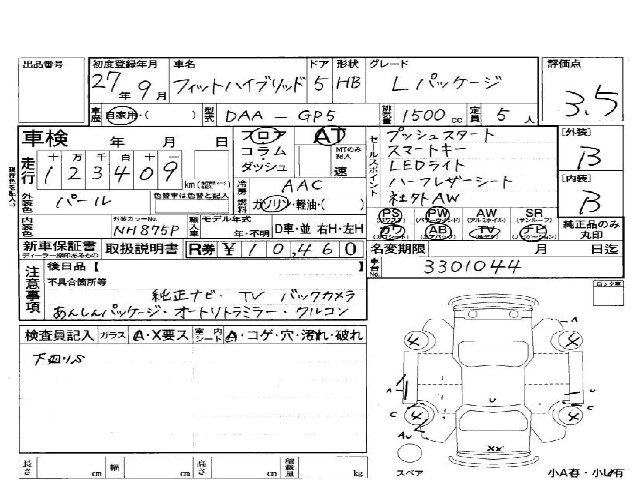 出品番号 初度登録年月 車名 ドア 形状 グレード 評価点
27年9月 フィットハイブリッド 5 HB Lパッケージ 3.5
車歴 自家用・( ) 型式 DAA-GP5 排気量 1500cc 定員 5人
車検 年 月 日 フロア AT セールスポイント プッシュスタート [外装]
コラム・ダッシュ MTのみ記入 速 スマートキー B
走行 十万千百十 123409 km LEDライト
ハーフレザーシート [内装]
外装色 パール 色替車は色替と記入 冷房 AAC 社外AW B
燃料 ガソリン・軽油・( ) PS PW AW SR
内装色 外装カラーNo. NH875P 輸入車 モデル年式 年・不明 D車・並 右H・左H カワ AB TV ナビ 純正品のみ丸印
新車保証書 取扱説明書 R券 ¥10,460 名変期限 月 日迄
ディーラー捺印あるもの
注意事項 後日品【 】 車台No. 3301044
不具合箇所等
純正ナビ・TV バックカメラ
あんしんパッケージ・オートリトラミラー・クルコン
検査員記入 ガラス A・X要ス 室内シート A・コゲ・穴・汚れ・破れ
下回りS
A U
4 4
C U C
4 4
A XX
スペア 小A有・小U有
長さ cm 幅 cm 高さ cm 積載量 kg